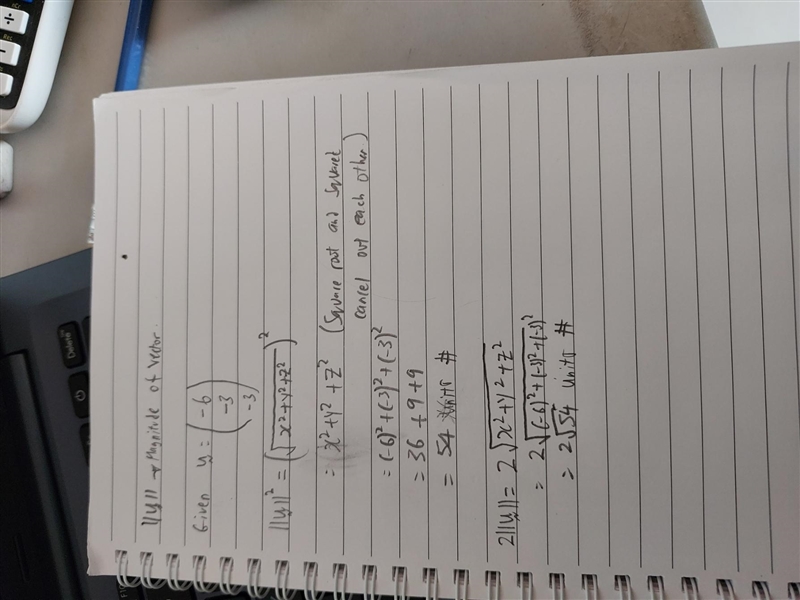 ||y|| → Magnitude of vector.
Given y = (-6
-3
-3)
||y||² = (√x²+y²+z²)²
= x²+y²+z² (Square root and squared
cancel out each other)
= (-6)²+(-3)²+(-3)²
= 36+9+9
= 54 #
2||y|| = 2√x²+y²+z²
= 2√(-6)²+(-3)²+(-3)²
= 2√54 units #
Delete
÷
−